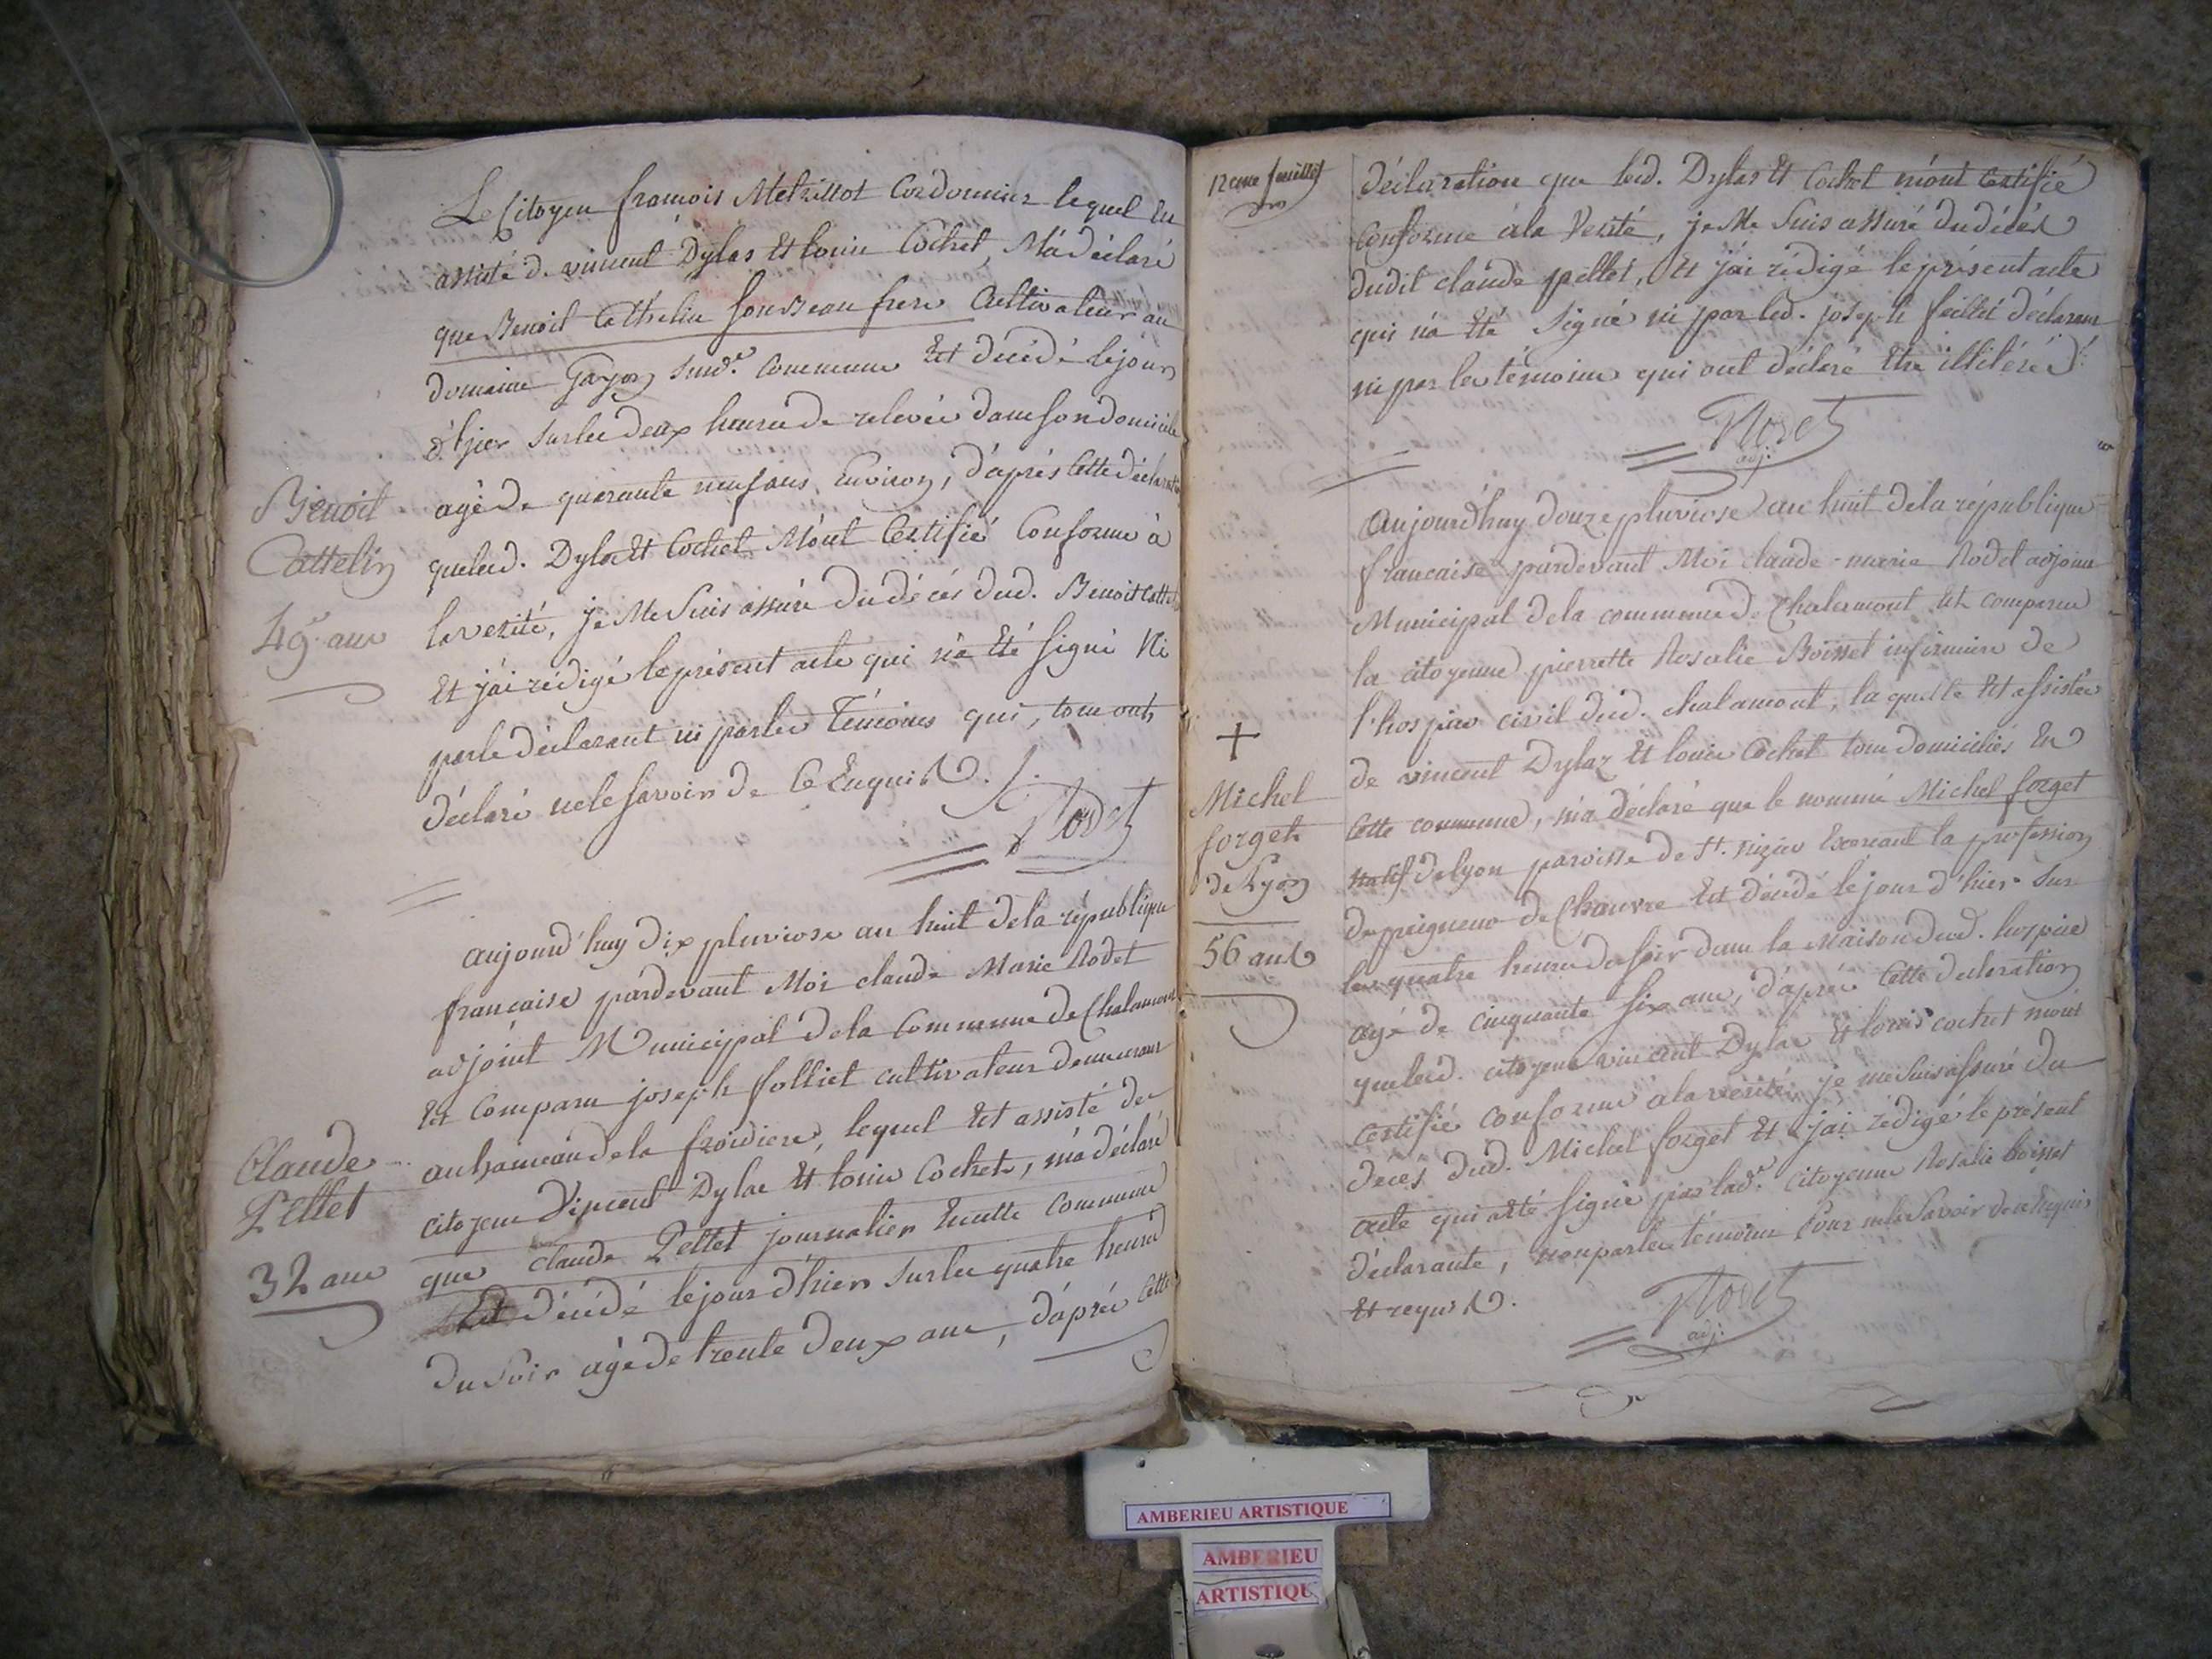 Le Citoyen françois Metrillot Cordonnier lequel En
assisté de vincent Dylas Et Louis Cochet, M'a déclaré
que Benoit Cathelin son Beau frere Cultivateur au
domaine Gayon susd.e Commune Est décédé le jour
d'hjer sur les deux heures de relevée dans son domicile
agé de quarante neuf ans Environ, d'après Cette déclaration
Benoit
Cattelin
49. ans
que lesd. Dylas Et Cochet M'ont Certifié Conforme à
la verité, je Me suis assuré du décès dud. Benoit Cattelin
Et j'ai rédigé le présent acte qui n'a Eté signé Ni
par le déclarant ni par les Témoins qui, tous ont
déclaré ne le savoir de Ce Enquis.
Rodet
aujourd'huy dix pluviose an huit de la république
francaise pardevant Moi claude Marie Rodet
adjoint Municipal de la Commune de Chalamont
Est Comparu joseph folliet cultivateur demeurant
au hameau de la froidiere, lequel Est assisté des
Claude
Pellet
32 ans
citoyens Vincent Dylas Et Louis Cochet, m'a déclaré
que claude Pellet journalier En cette Commune
Est décédé le jour d'hier sur les quatre heures
du soir agé de trente deux ans, d'après Cette
12eme feuillet
déclaration que lesd. Dylas Et Cochet m'ont Certifié
Conforme à la Verité, je Me suis assuré du décès
dudit claude pellet, Et j'ai rédigé le présent acte
qui n'a Eté signé ni par led. joseph folliet déclarant
ni par les témoins qui ont déclaré Etre illitérés
Rodet
adj.
Aujourd'huy douze pluviose an huit de la république
francaise pardevant Moi claude-marie Rodet adjoint
Municipal de la commune de Chalamont Est comparue
la citoyenne pierrette Rosalie Boisset infirmiere de
l'hospice civil dud. chalamont, la quelle Est assistée
de vincent Dylaz Et Louis Cochet tous domiciliés En
+
Michel
forget
de Lyon
56 ans
Cette commune, m'a déclaré que le nommé Michel forget
natif de lyon paroisse de St. nizier Exercant la profession
de peigneur de Chanvre Est décédé le jour d'hier sur
les quatre heures du soir dans la Maison dud. hospice
agé de cinquante six ans, d'après Cette declaration
que lesd. citoyens vincent Dylas Et Louis cochet m'ont
certifié conforme à la vérité, je me suis assuré du
décès dud. Michel forget Et j'ai rédigé le présent
acte qui a Eté signé par lad.e citoyenne Rosalie boisset
déclarante, non par les témoins Pour ne le savoir de ce Enquis
Et requis.
Rodet
adj.
AMBERIEU ARTISTIQUE
AMBERIEU
ARTISTIQU